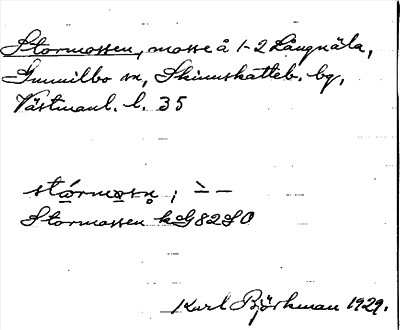 Stormossen, mosse å 1-2 Långnäla,
Gunnilbo sn, Skinnskatteb. bg,
Västmanl. l. 35
stórmosn̥ ; ` –
Stormossen kG82SO
Karl Björkman 1929.